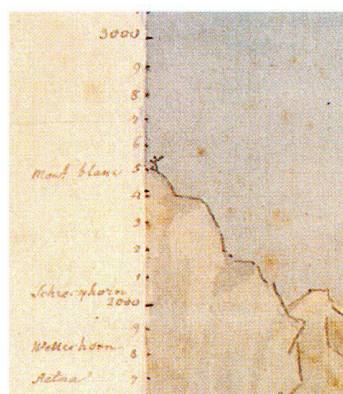 3000
9
8
7
6
Mont blanc 5
4
3
2
1
Schreckhorn
2000
9
Wetterhorn
8
Aetna 7